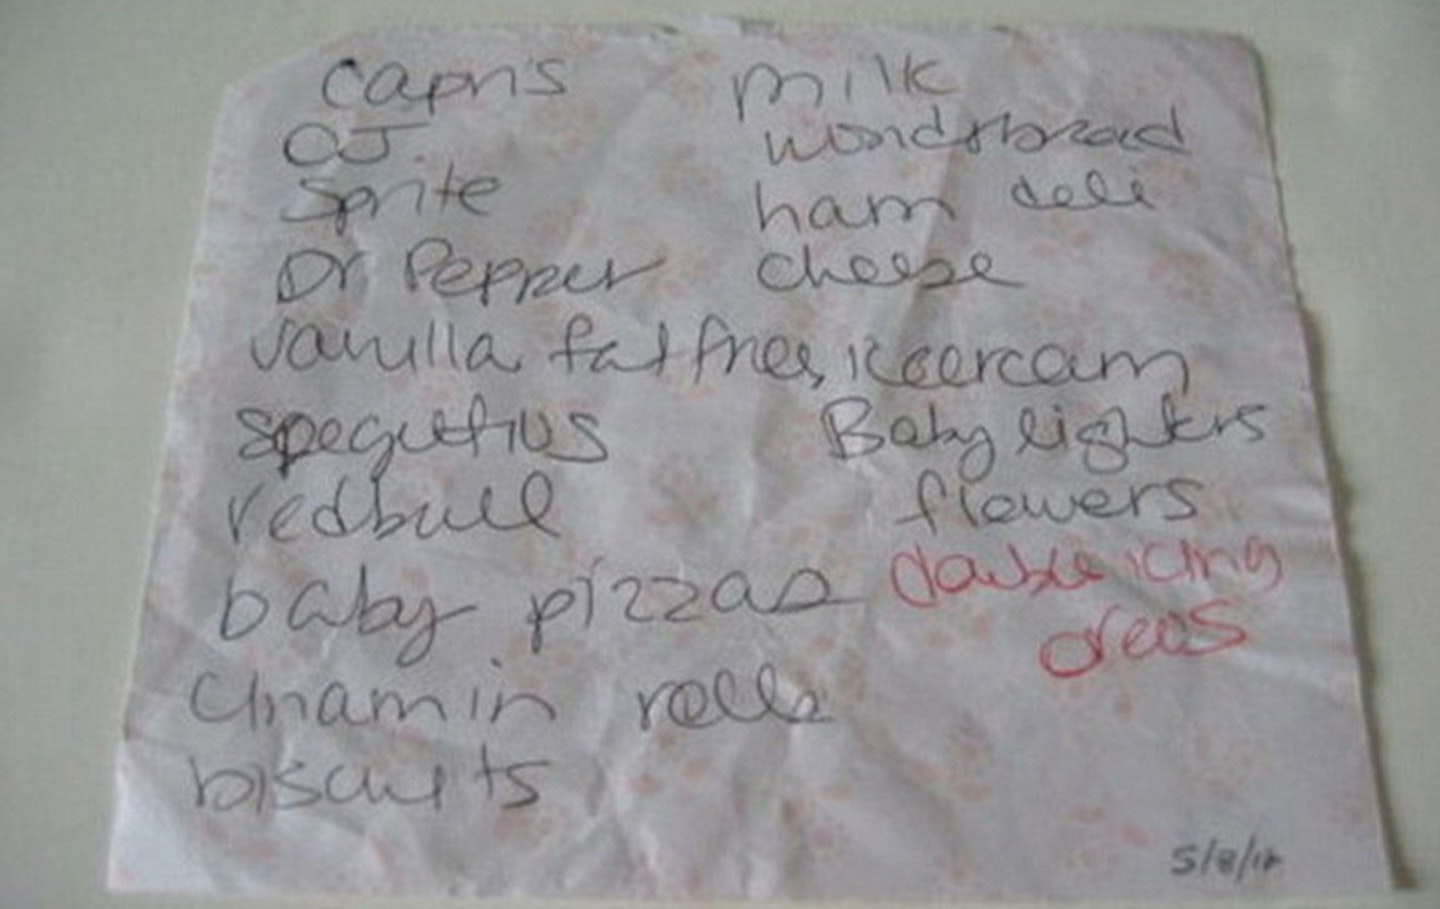 Capris
OJ.
Sprite
Dr Pepper
vanilla fat free icecercam
speguttius
redbull
baby pizzas
Cinamin rolls
biscuits
milk
wonderbread
ham deli
cheese
Baby lighters
flowers
double icing
oreos
5/8/12